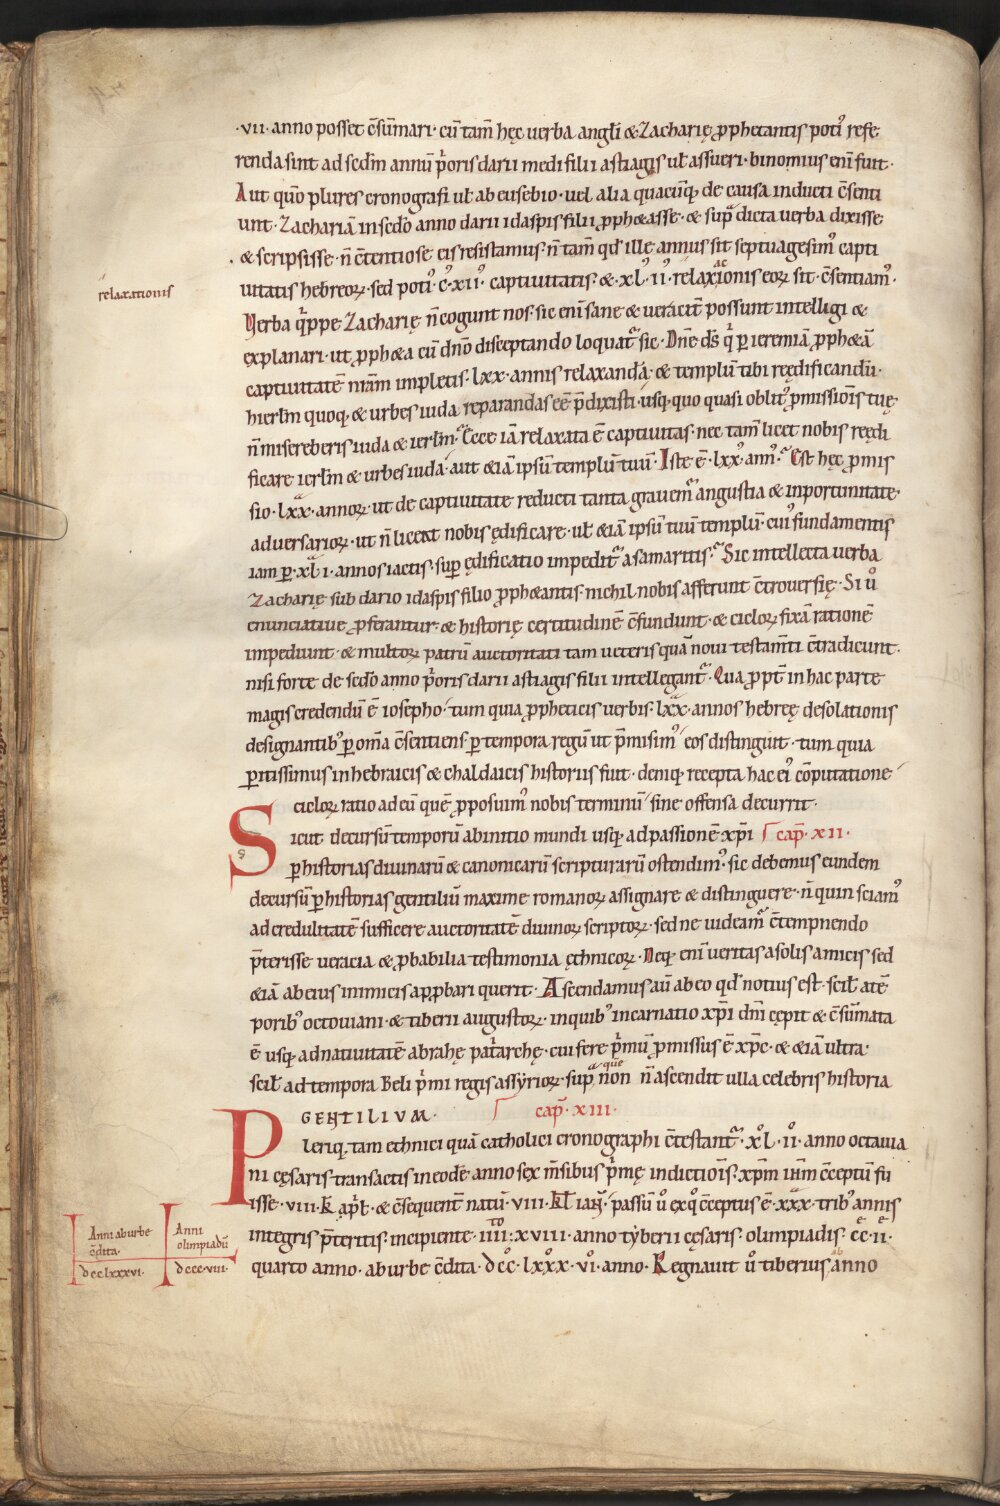 ·vii· anno posset c̄sūmari· cū tam̄ hęc uerba angłi & Zacharię ꝓphetantis poti᷒ refe
renda sint ad sedm̄ annū p̓oris darii medi filii astiagis uł assueri· binomius enī fuit·
Aut quō plures cronografi uł ab eusebio· uel alia quacūq; de causa inducti c̄senti
unt· Zachariā in sedo anno darii idaspis filii ꝓph&asse· & sup̄ dicta uerba dixisse
& scripsisse· n̄ c̄tentiose eis resistamus· n̄ tam̄ qd ille annus sit septuagesim᷒ capti
uitatis hebreoꝝ· sed poti᷒ c᷒·xii᷒· captiuitatis· & ·xl᷒·ii᷒· relaxionis eoꝝ sit· c̄sentiam᷒·
relaxationis
Verba q̓ppe Zacharię n̄ cogunt nos· sic enī sane & ueracit̄ possunt intelligi &
explanari· ut ꝓph&a cū dn̄o disceptando loquat̄ sic· Dn̄e ds̄ q̓ ꝑ ieremiā ꝓph&ā
captiuitatē nr̄am impletis·lxx·annis relaxandā· & templū tibi reędificandū·
hierłm quoq; & urbes iuda reparandas eē p̄dixisti· usq; quo quasi oblit᷒ ꝓmissiōis tuę
n̄ misereberis iuda & ierłm· Ecce iā relaxata ē captiuitas· nec tam̄ licet nobis reędi
ficare ierłm & urbes iuda· aut &iā ipsū templū tuū· Iste ē·lxx᷒ ann᷒· Est hęc ꝓmis
sio·lxx·annoꝝ· ut de captiuitate reducti tanta grauem̄ angustia & inportunitate
aduersarioꝝ· ut n̄ liceat nobis ędificare· uł &iā ipsū tuū templū· cui᷒ fundamentis
iam ꝑ·xl·i·annos iactis· suꝑ ędificatio impedit̄ a samaritis· Sic intellecta uerba
Zacharię sub dario idaspis filio ꝓph&antis· nichil nobis afferunt c̄trouersię· Si ů
enunciatiue ꝓferantur· & historię certitudinē c̄fundunt· & cicloꝝ fixā rationē
impediunt· & multoꝝ patrū auctoritati tam ueteris quā noui testam̄ti c̄tradicunt·
nisi forte de sedo anno p̓oris darii astiagis filii intellegant̄· Qua ꝓpt̄ in hac parte
magis credendū ē iosepho· tum quia ꝓpheticis uerbis·lxx·annos hebreę desolationis
designantib᷒ ꝑ om̄a c̄sentiens· ꝑ tempora regū ut p̄misim᷒ eos distinguit· tum quia
ꝑitissimus in hebraicis & chaldaicis historiis fuit· deniq; recepta hac ei᷒ cōputatione
cicloꝝ ratio ad eū quē ꝓposuim᷒ nobis terminū sine offensa decurrit·
Sicut decursū temporū ab initio mundi usq; ad passionē xp̄i cap̄·XII·
ꝑ historias diuinarū & canonicarū scripturarū ostendim᷒· sic debemus eundem
decursū ꝑ historias gentiliū maxime romanoꝝ assignare & distinguere· n̄ quin sciam᷒
ad credulitatē sufficere auctoritatē diuinoꝝ scriptoꝝ· sed ne uideam̄ c̄tempnendo
p̄terisse ueracia & ꝓbabilia testimonia ęthnicoꝝ· Neq; enī ueritas a solis amicis sed
&iā ab eius inimicis appbari querit· Ascendamus aū ab eo qd notius est· scił a tē
porib᷒ octouiani· & tiberii augustoꝝ· in quib᷒ incarnatio xp̄i dn̄i cępit & c̄sūmata
ē usq; ad natiuitatē abrahę pat̓archę· cui fere p̓mū ꝓmissus ē xp̄c· & &iā ultra·
scił ad tempora Beli p̓mi regis assyrioꝝ· sup̄ quē non n̄ ascendit ulla celebris historia
GENTILIVM· cap̄·XIII·
Pleriq; tam ethnici quā catholici cronographi c̄testant̄·x͛l·ii͛· anno octauia
ni cęsaris transactis in eodē anno sex m̄sibus p̓mę indictiōis· xp̄m ih̄m c̄ceptū fu
isse·viii·k̄ apł· & c̄sequent̄ natū·viii·kł ian̄· passū ů ex q̊ c̄ceptus ē·xxx·trib᷒ annis
integris p̄teritis· incipiente·iiii·xviii·anno tyberii cęsaris· olimpiadis·cc·ii·
quarto anno· ab urbe c̄dita·dcc·lxxx·vi·anno· Regnauit ů tiberius ab anno
Anni ab urbe
c̄dita·
dcclxxxvi·
Anni
olimpiadū
dccc·viii·